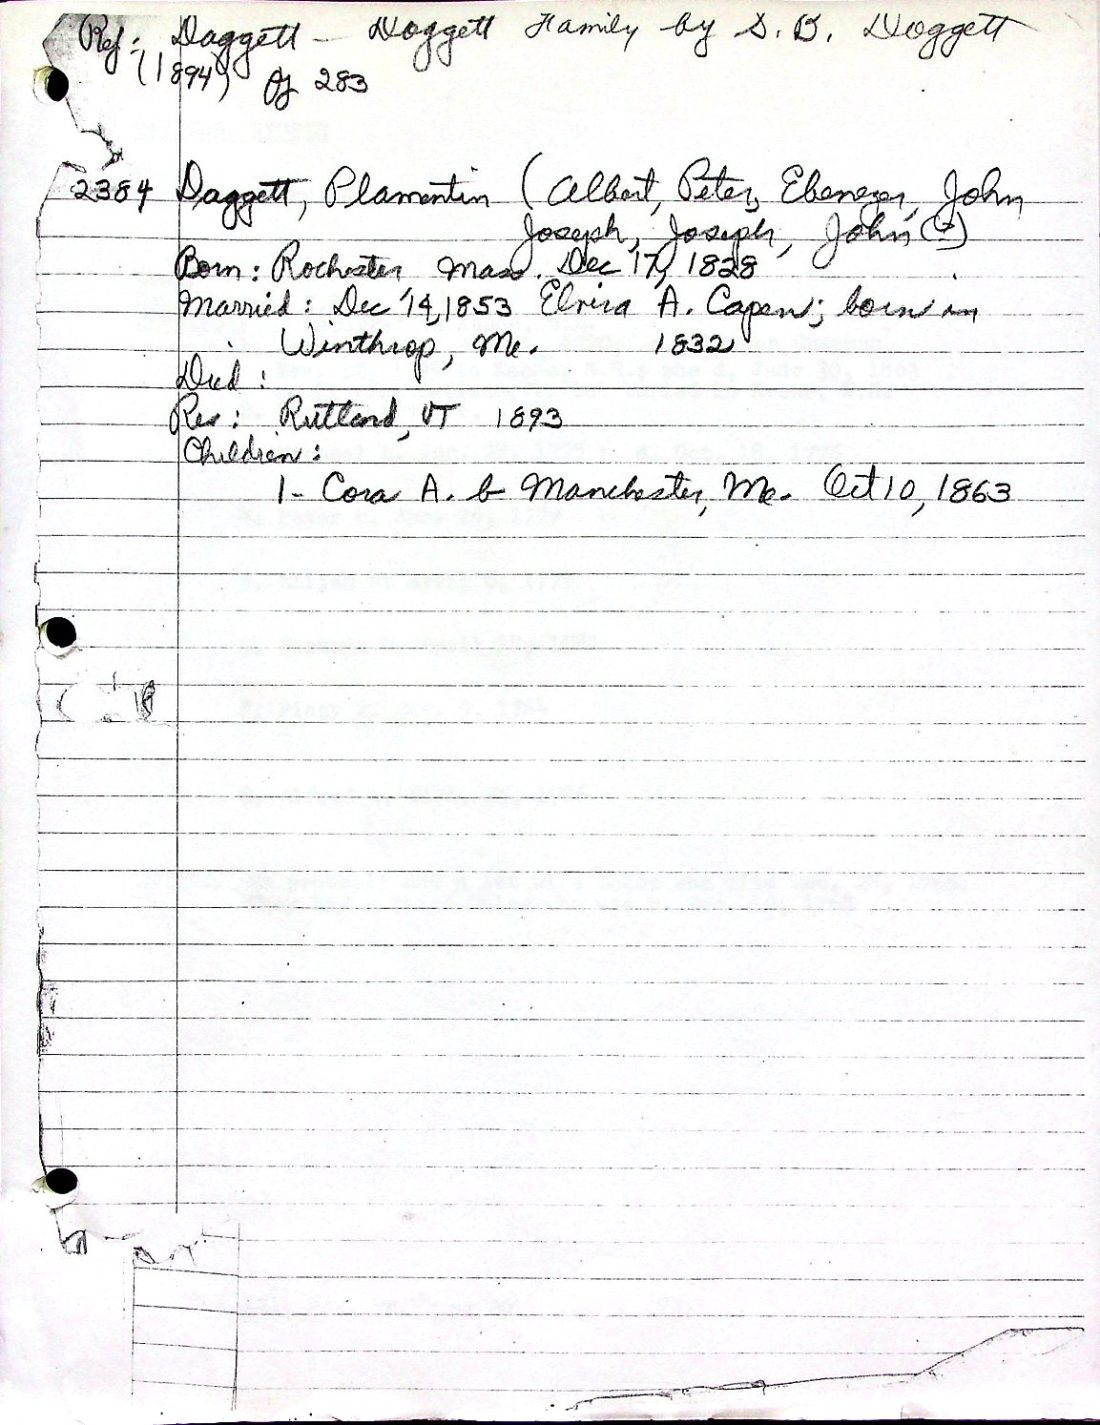 Ref: Daggett - Doggett Family by S. B. Doggett
(1894) Pg 283
2384 Daggett, Plamentin (Albert, Peter, Ebenezer, John
Joseph, Joseph, John
Born: Rochester, Mass. Dec 17, 1828
Married: Dec 14, 1853 Elvira A. Capen; born in
Winthrop, Me. 1832
Died:
Res: Rutland, VT 1893
Children:
1- Cora A. b Manchester, Me. Oct 10, 1863